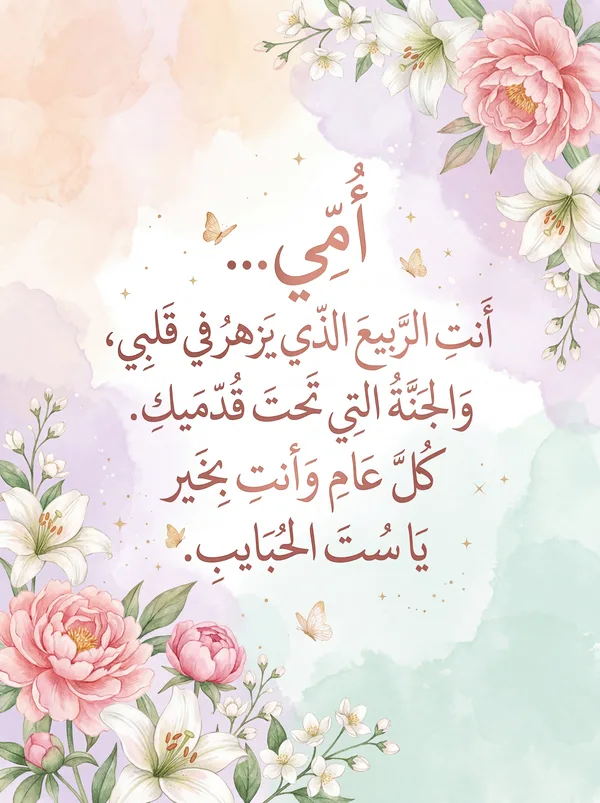 أُمِّي...
أَنتِ الرَّبيعَ الذّي يَزهرُ في قَلبِي،
وَالجَنَّةُ التِي تَحتَ قُدّمَيكِ.
كُلَّ عَامِ وَأنتِ بِخَير
يَا سُتَ الحُبَايبِ.